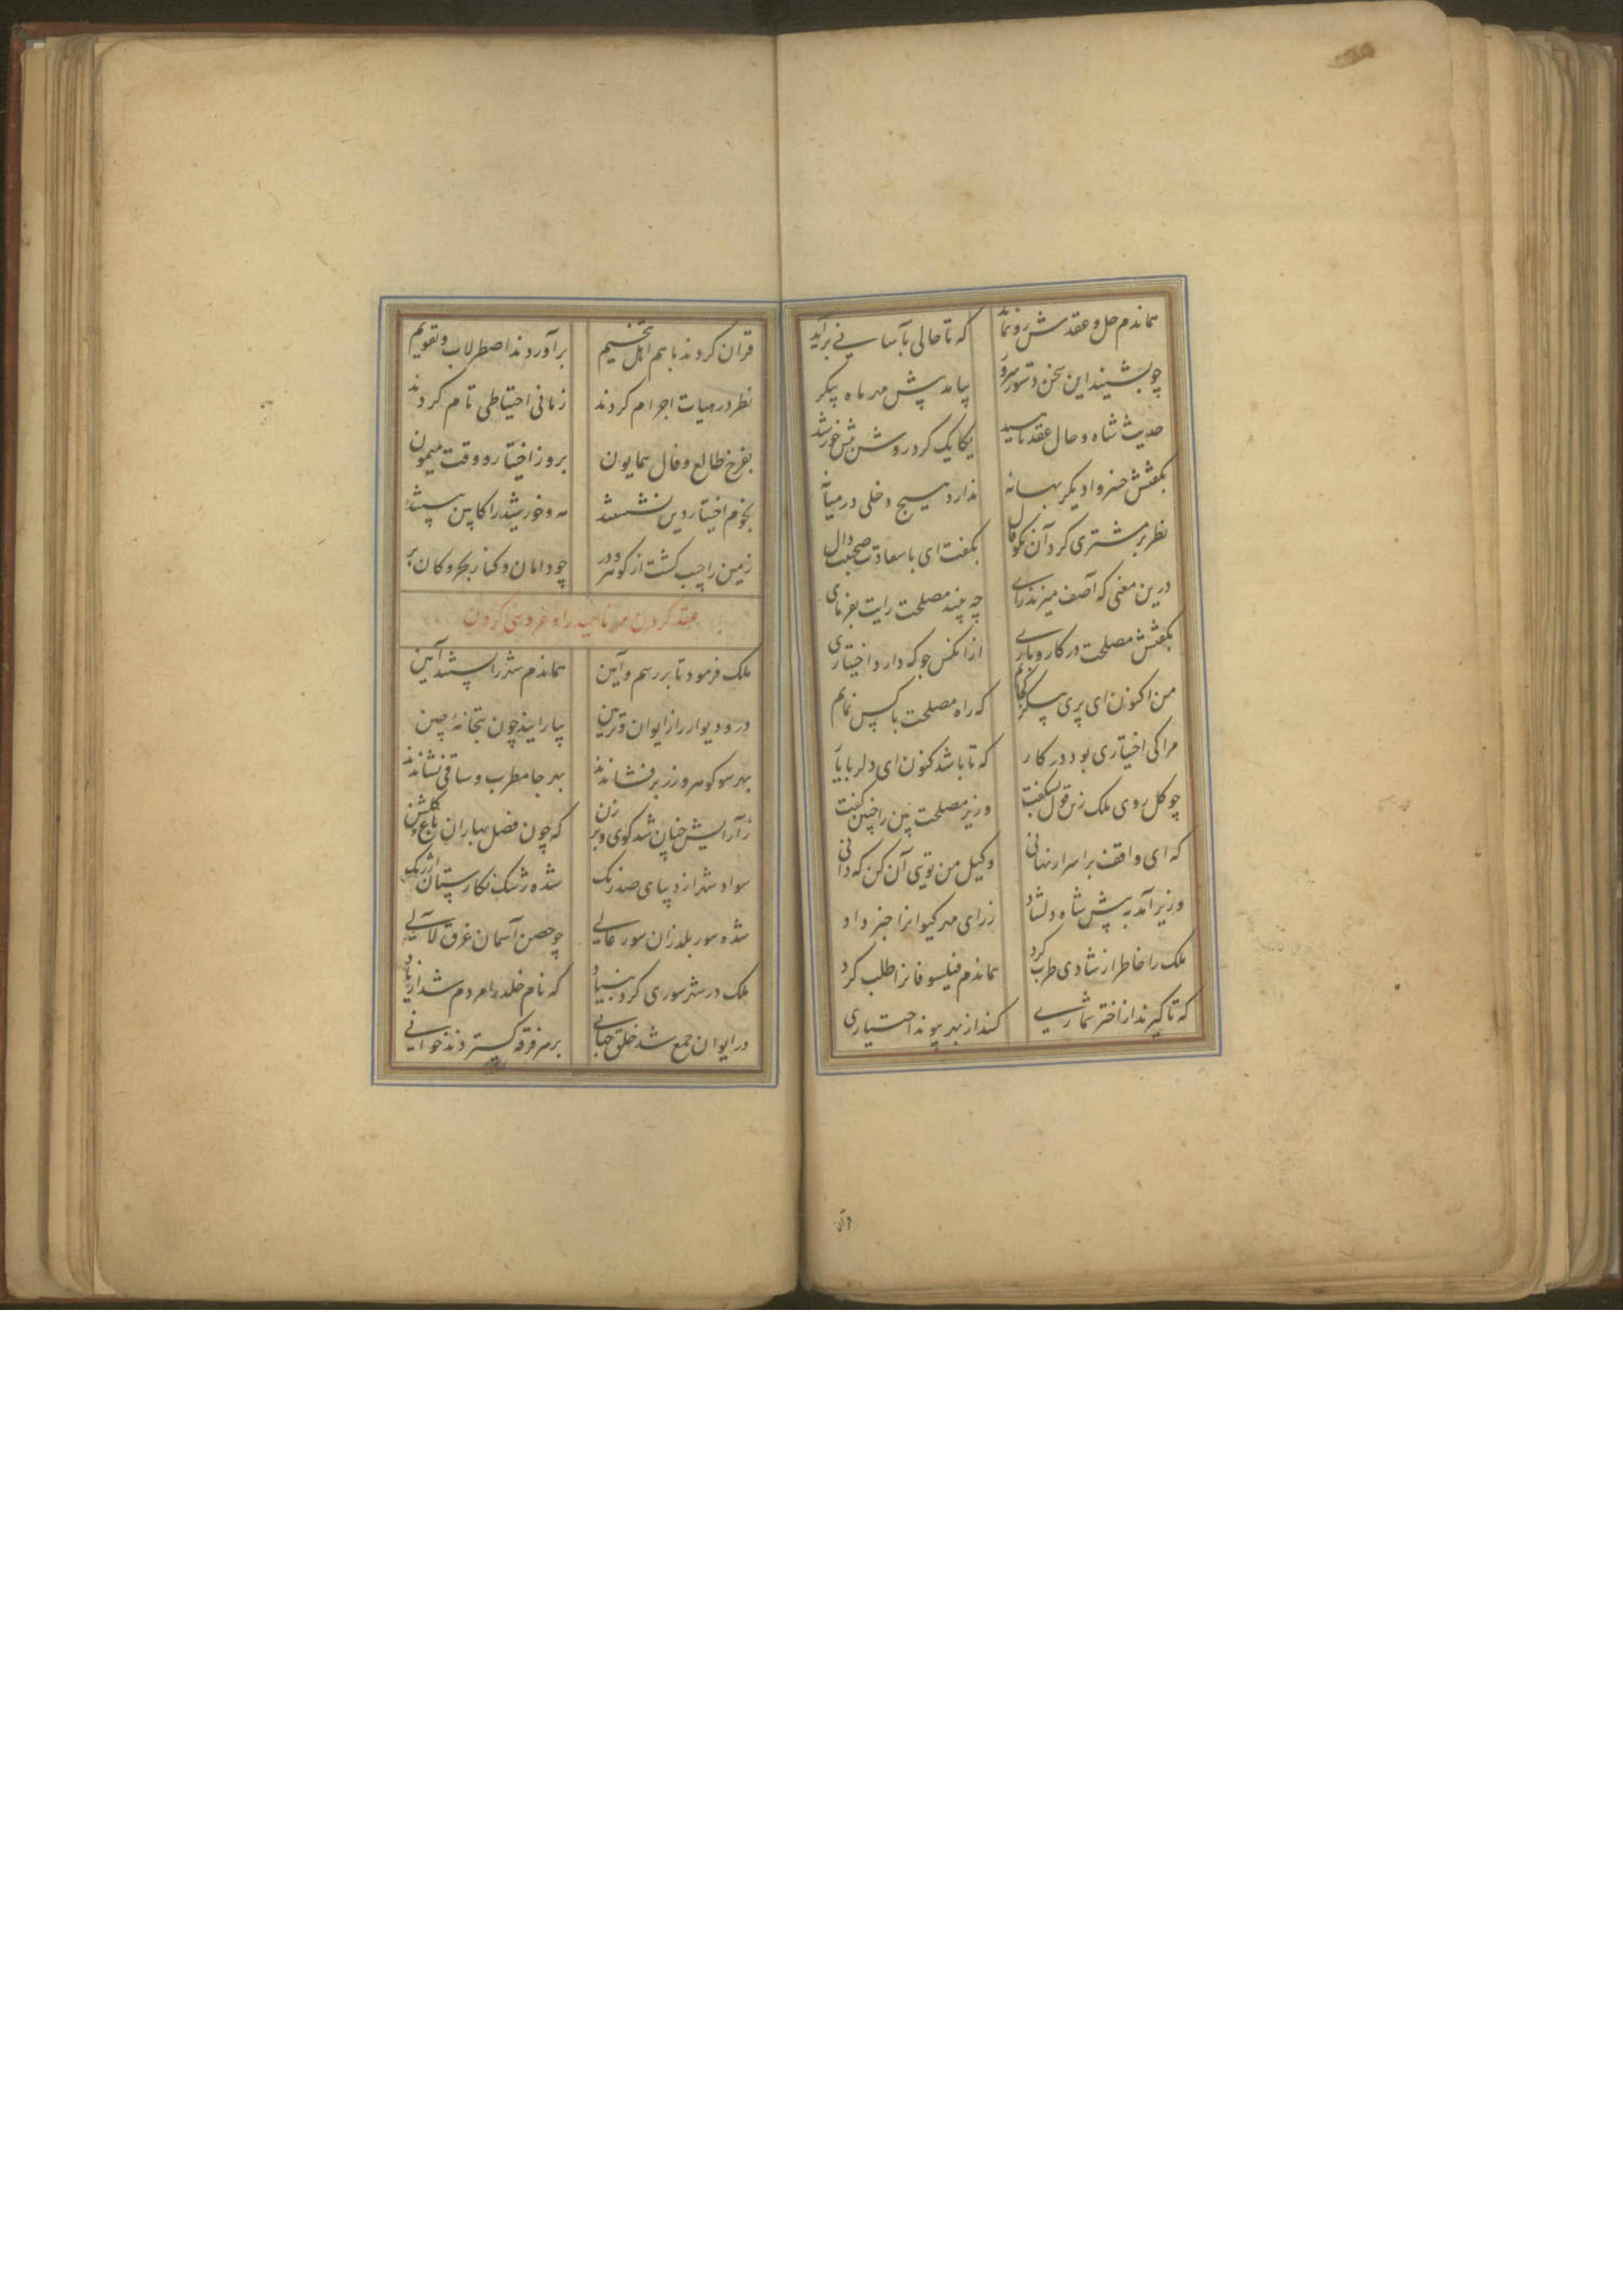 هماندم حل و عقدش رو نماید که تا حالی بآسانی برآید
چو بشنید این سخن دستور سرور بیامد پیش مهر ماه پیکر
حدیث شاه و حال عقد ناهید یکایک کرد روشن پیش خورشید
بگفتش خسرو از دیگر بهانه ندارد هیچ دخلی در میانه
نظر بر مشتری کرد آن نکوفال بگفت ای با سعادت
درین معنی که آصف میزند رای چه بیند مصلحت رایت بفرمای
بگفتش مصلحت در کار و باری از آنکس جو که دارد اختیاری
من اکنون ای پری پیکر کجایم که راه مصلحت با کس نمایم
مرا کی اختیاری بود در کار که تا باشد کنون ای دلربا یار
چو گل روی ملک زین قول بشکفت وزیر مصلحت بین را چنین گفت
که ای واقف بر اسرار نهانی وکیل من توی آن کن که دانی
وزیر آمد به پیش شاه دلشاد ز رای مهر کیوانرا خبر داد
ملک را خاطر از شادی طرب کرد هماندم فیلسوفانرا طلب کرد
که تا گیرند از اختر شماری کنند از بهر پیوند اختیاری
قران
قران کردند با هم اهل تنجیم برآوردند اصطرلاب و تقویم
نظر در هیات اجرام کردند زمانی احتیاطی تام کردند
بفرخ طالع و فال همایون بروز اختیار و وقت میمون
نجوم اختیار دین نشستند مه و خورشید را کابین ببستند
زمین را جیب گشت از گوهر و در چو دامان و کنار بحر و کان پر
عقد کردن مهر ناهید را و عروسی کردن
ملک فرمود تا بر رسم و آیین هماندم شهر را بستند آیین
در و دیوار را از ایوان و تزیین بیارایند چون بتخانه چین
بهر سو گوهر و زر برفشاندند بهر جا مطرب و ساقی نشاندند
ز آرایش چنان شد کوی و برزن که چون فصل بهاران باغ و گلشن
سواد شهر از دیبای صد رنگ شده رشک نگارستان ارژنگ
شده سور بلد زان سور عالی چو حصن آسمان غرق لآلی
ملک در شهر سوری کرد بنیاد که نام خلد را مردم شد از یاد
در ایوان جمع شد خلق جهانی بهر فرقه گستردند خوانی